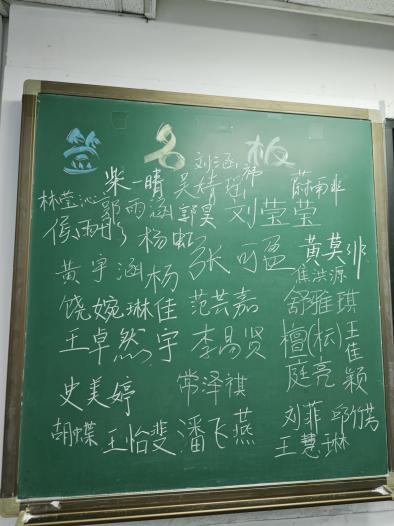 签名板
刘涵
柴一晴 吴婧瑶 蔚雨非
林莹沁 郭雨涵 郭昊 刘莹莹
侯雨 杨虹 张可盈 黄莫非
黄宇涵 焦洪源
饶婉琳 杨佳宇 范芸嘉 舒雅琪
王卓然 李易贤 檀(坛)庭亮 王佳颖
史美婷 常泽祺
胡蝶 王怡斐 潘飞燕 刘菲 邱竹芸
王慧琳